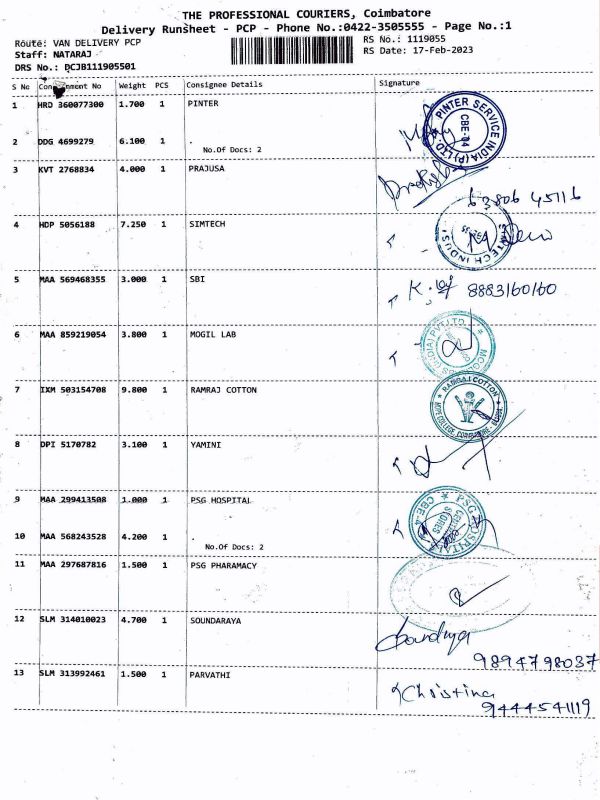 THE PROFESSIONAL COURIERS, Coimbatore
Delivery Runsheet - PCP - Phone No.:0422-3505555 - Page No.:1
Route: VAN DELIVERY PCP
RS No.: 1119055
Staff: NATARAJ
RS Date: 17-Feb-2023
DRS No.: DCJB111905501
S No Consignment No Weight PCS Consignee Details Signature
1 HRD 360077300 1.700 1 PINTER
PINTER SERVICE INDIA (P) LTD. CBE-04
2 DDG 4699279 6.100 1 .
No.Of Docs: 2
3 KVT 2768834 4.000 1 PRAJUSA
63806 45116
4 HDP 5056188 7.250 1 SIMTECH
SIMTECH INDUS
5 MAA 569468355 3.000 1 SBI
8883160160
6 MAA 859219054 3.800 1 MOGIL LAB
(INDIA) PVT LTD
7 IXM 503154708 9.800 1 RAMRAJ COTTON
RAMRAJ COTTON
HOPE COLLEGE, COIMBATORE
8 DPI 5170782 3.100 1 YAMINI
9 MAA 299413508 1.000 1 PSG HOSPITAL
PSG HOSPITAL CBE-4
STORES
10 MAA 568243528 4.200 1 .
No.Of Docs: 2
11 MAA 297687816 1.500 1 PSG PHARAMACY
12 SLM 314010023 4.700 1 SOUNDARAYA
Soundarya
9894798037
13 SLM 313992461 1.500 1 PARVATHI
Christina
9444541119